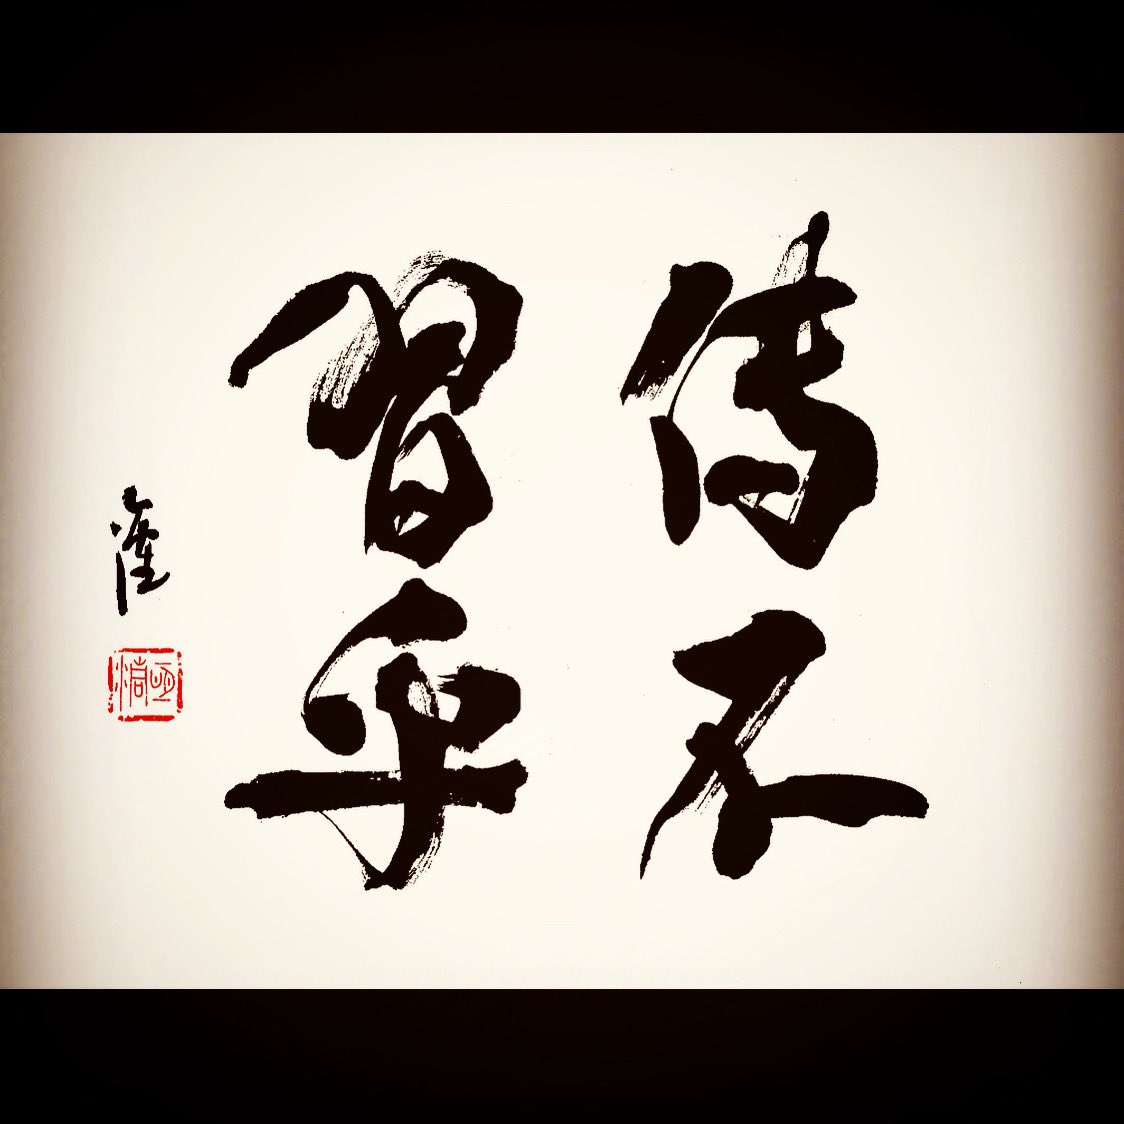 傳不
習乎